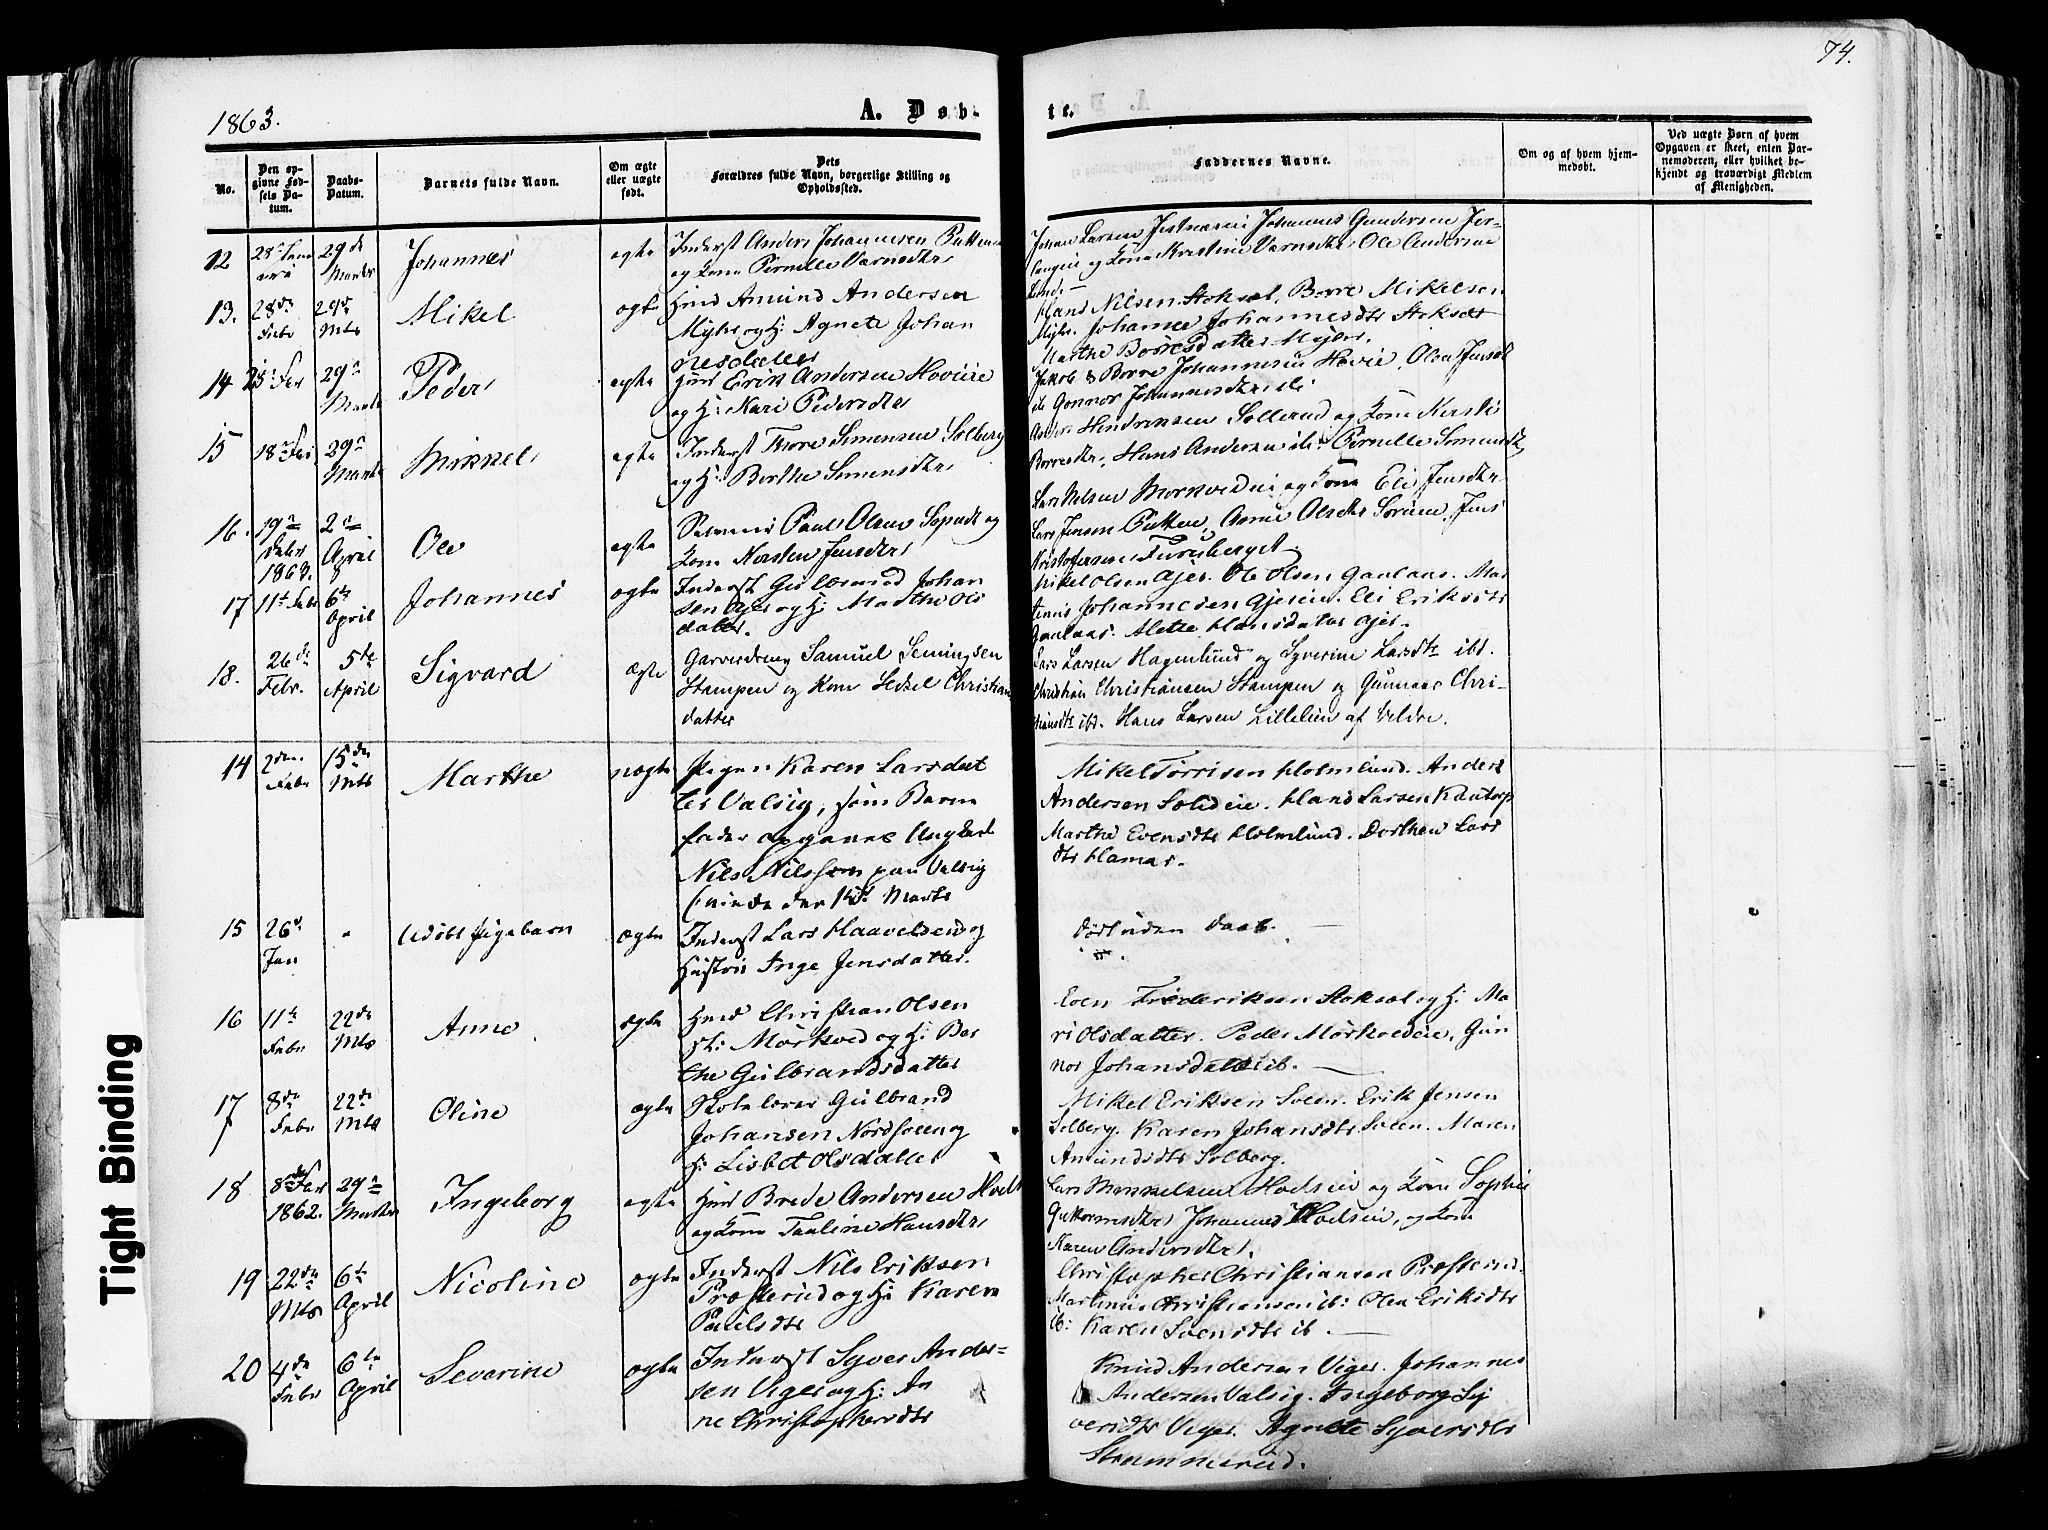 74.
1863.
A. Døb-
te.
No.
Den op-
givne Fød-
sels Da-
tum.
Daabs-
Datum.
Barnets fulde Navn.
Om ægte
eller uægte
født.
Dets
Forældres fulde Navn, borgerlige Stilling og
Opholdssted.
Faddernes Navne.
Om og af hvem hjem-
medøbt.
Ved uægte Børn af hvem
Opgaven er skeet, enten Bar-
nemoderen, eller hvilket be-
kjendt og troværdigt Medlem
af Menigheden.
12
29de
Marts
Johannes
ægte
Inderst Anders Johannesen
og Kone Pernille
Johan Larsen Johannes Gundersen
og Kone Kristine Ole Andersen
13.
28de
Febr
29de
Mts
Mikel
ægte
Hmd Amund Andersen
Myhr og H: Agnete Johan
nesdatter
Hans Nilsen Stoksæt, Borre Mikelsen
Myhr. Johanne Johannesdtr Stoksæt
Marthe Borresdatter Myhr.
14
29de
Marts
Peder
ægte
Hmd Erik Andersen
og H: Kari Pedersdtr
Jakob & Borre Johannesen
Gonnor Johannesdtr ib
15
18de Febr
29de
Marts
Mikkel
ægte
Inderst Thore Simensen Solberg
og H: Berthe Simensdtr
Sollerud og Kone
Borresdtr, Hans Andersen ib. Pernille
16.
19de
Febr
1863.
2de
April
Ole
ægte
Paul Olsen og
Kone Kersten Jensdtr
Lars Nilsen og Kone Eli Jensdtr
Lars Jensen Anne Olsdtr Jens
Kristofersen Furuberget
17
11te Febr
6te
April
Johannes
ægte
Inderst Gulbrand Johan
sen Gjer og H: Marthe Ols
datter.
Mikel Olsen Gjer. Ole Olsen Gaalaas. Mar
tinus Johannesen Gjereie. Eli Eriksdtr
Gaalaas. Alette Hansdatter Gjer.
18.
26de
Febr.
5te
April
Sigvard
Ægte
Garversvend Samuel Semingsen
Stampen og Kone Sidsel Christians
datter
Lars Larsen Hagenlund og Syverine Larsdtr ibd.
Christian Christiansen Stampen og Gunnor Chri-
stiansdtr ibd. Hans Larsen Lilleeien af Veldre.
14
2den
Febr
15de
Mts
Marthe
uægte
Pigen Karen Larsdat
ter Valsig, som Barne
fader opgaves Ungkarl
Nils Nilsson paa Valsig
Marts
Mikel Torrisen Holmlund. Anders
Andersen Solieie. Hans Larsen Kautorp
Marthe Evensdtr Holmlund. Dorthea Lars
dtr Hamar.
15
26de
Jan
"
Udøbt Pigebarn
ægte
Inderst Lars Haavelsen og
Hustru Inge Jensdatter.
Død uden Daab.
16
11te
Febr
22de
Mts
Anne
ægte
Hmd Christian Olsen
Mørkved og H: Ber
the Gulbrandsdatter
Even Frederiksen Stoksæt og H: Ma
ri Olsdatter. Peder Mørkvedeie, Gun
nor Johansdatter ib.
17
8de
Febr
22de
Mts
Oline
ægte
Skolelærer Gulbrand
Johansen Nordsveen og
H: Lisbet Olsdatter
Mikel Eriksen Sveen. Erik Jensen
Solberg. Karen Johansdtr Sveen. Maren
Amundsdtr Solberg.
18
8de Febr
1862.
29de
Marts
Ingeborg
ægte
Hmd Brede Andersen
og Kone Pauline Hansdtr
Lars Mikkelsen og Kone Sophie
Guttormsdtr Johannes og Kone
Karen Andersdtr.
19
22de
Mts
6te
April
Nicoline
ægte
Inderst Nils Eriksen
Præsterud og H: Karen
Paulsdtr
Christopher Christiansen Præsterud.
Martinus Christiansen ib: Olea Eriksdtr
ib: Karen Svensdtr ib.
20
4de
Febr
6te
April
Severine
ægte
Inderst Syver Ander-
sen Viger og H: An
ne Christophersdtr
Knud Andersen Viger. Johannes
Andersen Valsig. Ingeborg Sy
versdtr Viger. Agnete Syversdtr
Strammerud.
Tight Binding